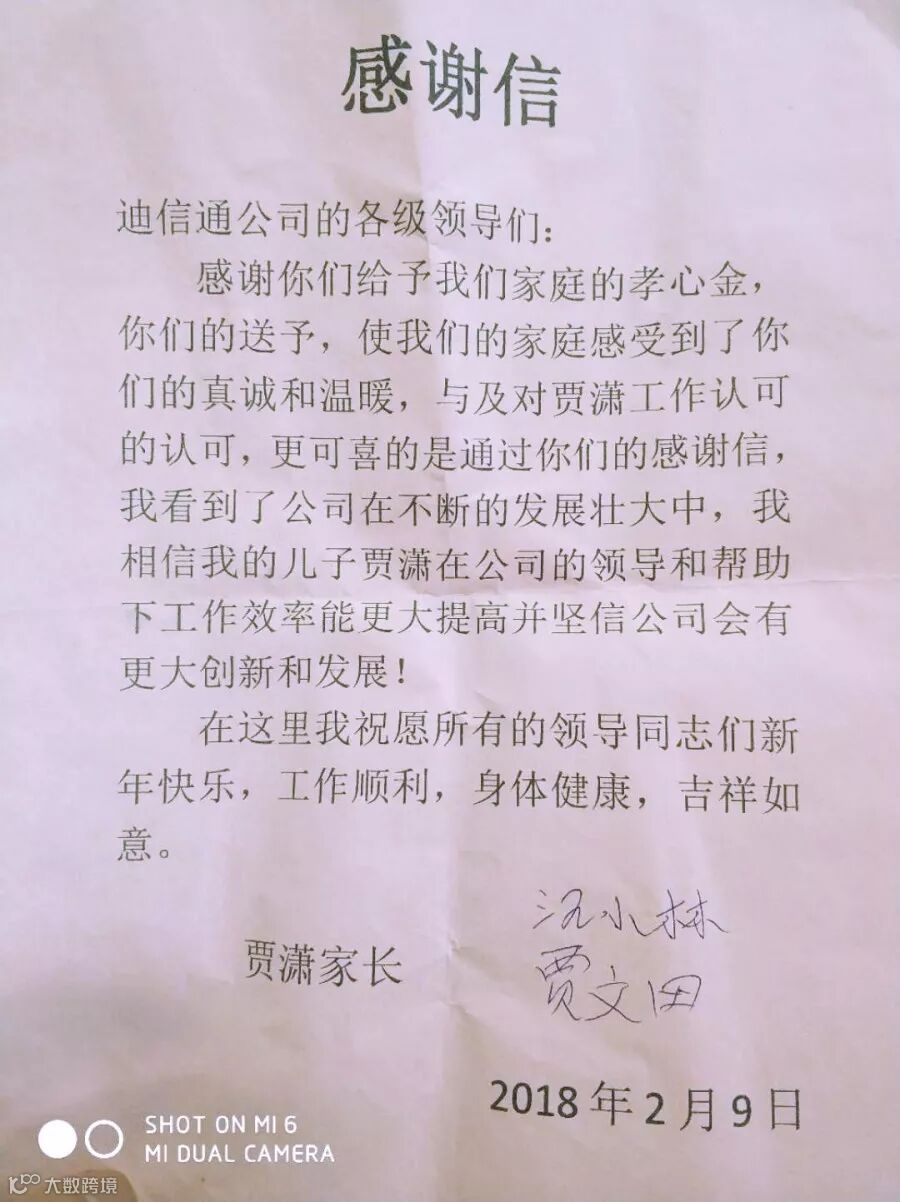 感谢信
迪信通公司的各级领导们：
感谢你们给予我们家庭的孝心金，
你们的送予，使我们的家庭感受到了你
们的真诚和温暖，与及对贾潇工作认可
的认可，更可喜的是通过你们的感谢信，
我看到了公司在不断的发展壮大中，我
相信我的儿子贾潇在公司的领导和帮助
下工作效率能更大提高并坚信公司会有
更大创新和发展！
在这里我祝愿所有的领导同志们新
年快乐，工作顺利，身体健康，吉祥如
意。
小林
贾潇家长
贾文田
2018年2月9日
SHOT ON MI 6
MI DUAL CAMERA
大数跨境